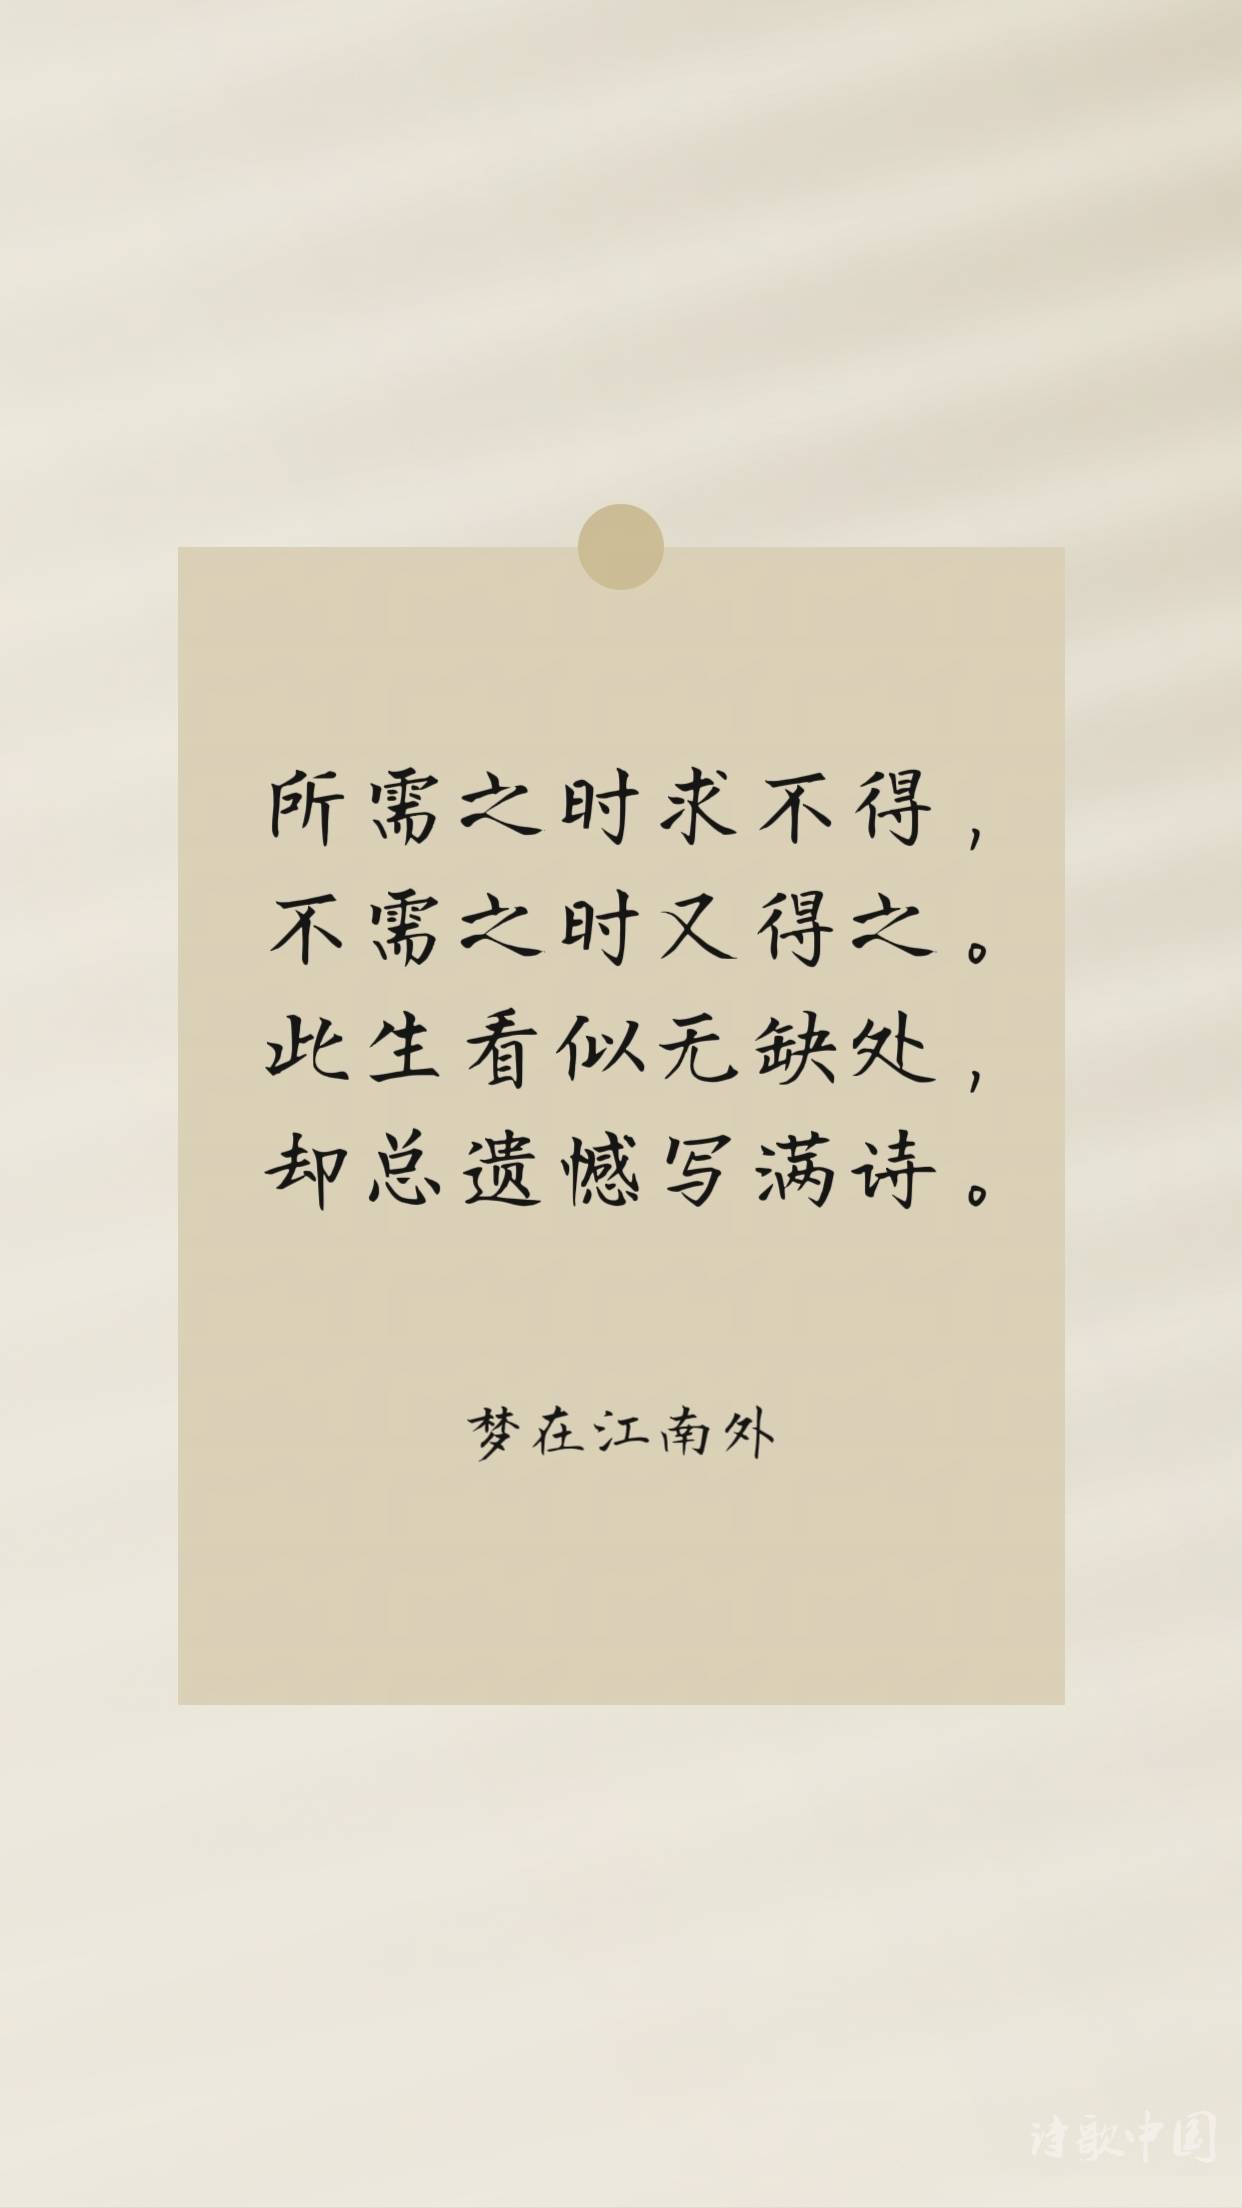 所需之时求不得，
不需之时又得之。
此生看似无缺处，
却总遗憾写满诗。
梦在江南外
诗歌中国